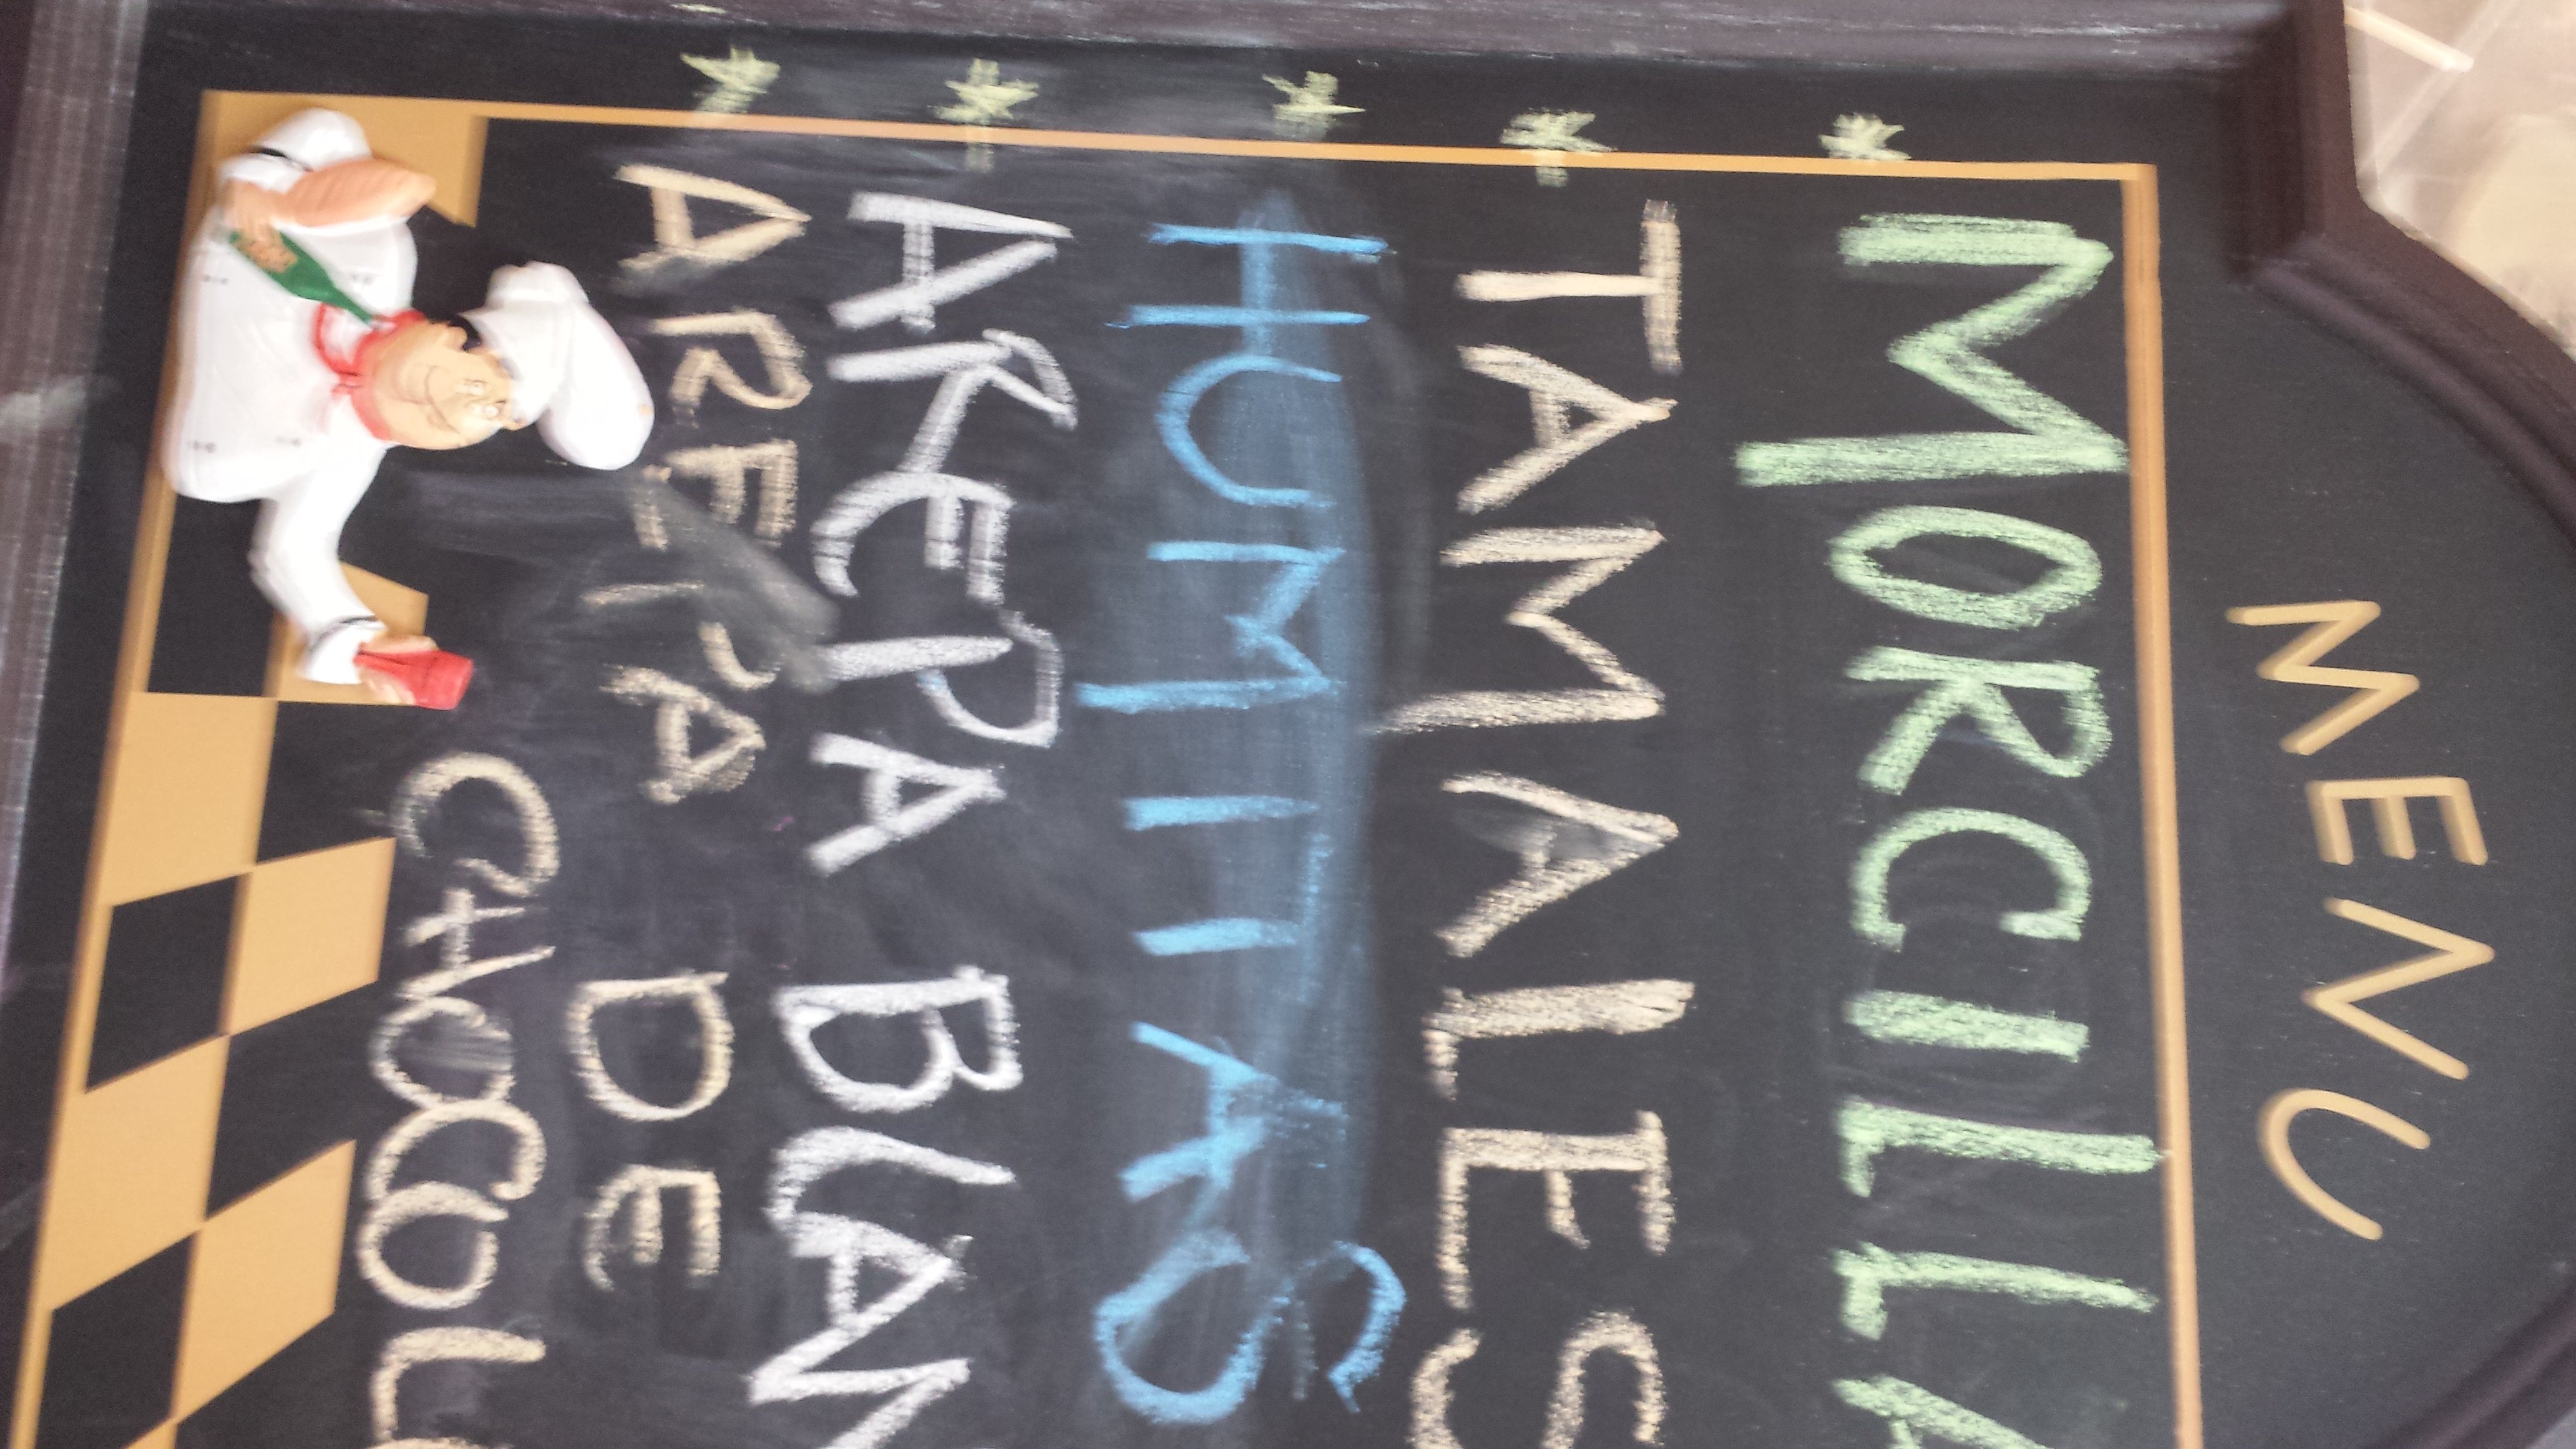 MENU
MORCILLA
TAMALES
HUMITAS
AREPA BLAN
AREPA DE
CHOCOLO